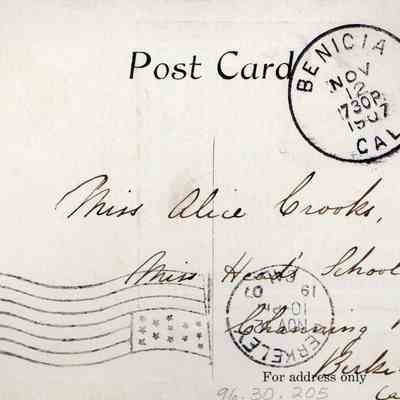 Post Card
BENICIA
NOV
12
730P
1907
CAL
Miss Alice Crooks,
Miss Head's School
Channing
Berke
Ca
19 07
10
NOV
BERKELEY
For address only
96.30.205